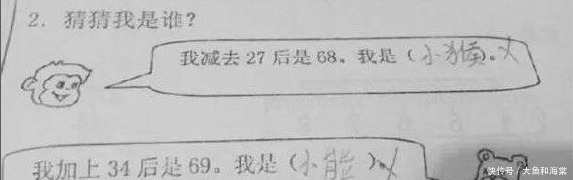 2. 猜猜我是谁?
我减去 27 后是 68。我是(小猴)。✗
我加上 34 后是 69。我是(小能)✗
快传号/大鱼和海棠